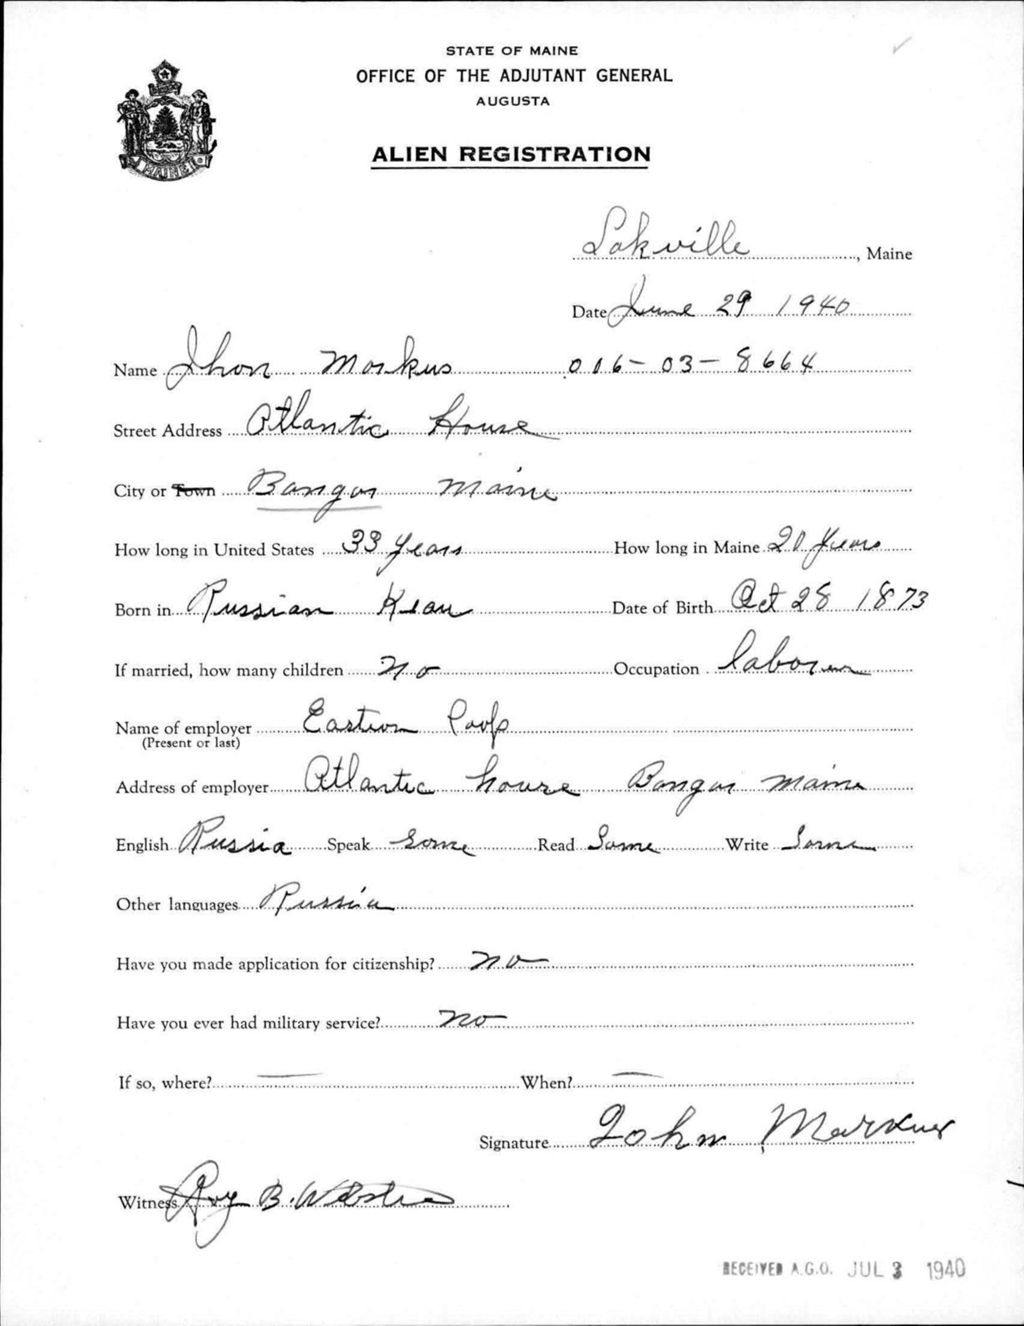 STATE OF MAINE
OFFICE OF THE ADJUTANT GENERAL
AUGUSTA
ALIEN REGISTRATION
MAINE
Lakville, Maine
Date June 29 1940
Name Jhon Morkus 006-03-8664
Street Address Atlantic House
City or Town Bangor Maine
How long in United States 33 years How long in Maine 20 Years
Born in Russian Date of Birth Oct 28 1873
If married, how many children No Occupation laborer
Name of employer Eastern
(Present or last)
Address of employer Atlantic house Bangor Maine
English Russia Speak Some Read Some Write Some
Other languages Russia
Have you made application for citizenship? no
Have you ever had military service? no
If so, where? — When? —
Signature John Markus
Witness Roy B. Webster
RECEIVED A.G.O. JUL 3 1940